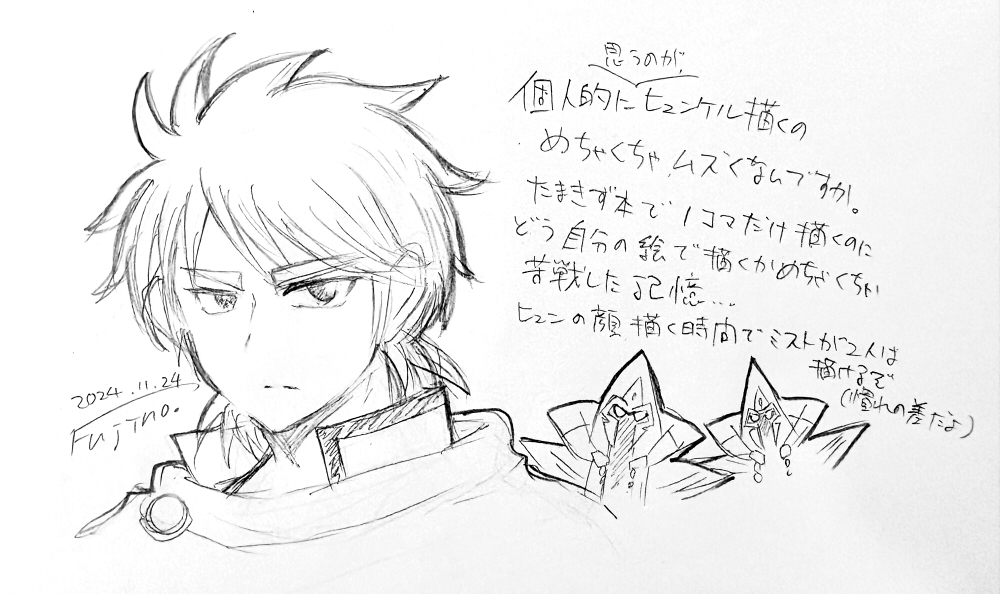 思うのが、
個人的にヒュンケル描くの
めちゃくちゃムズくないですか。
たまきず本で1コマだけ描くのに
どう自分の絵で描くかめちゃくちゃ
苦戦した記憶…
ヒュンの顔描く時間でミストが2人は
描けるぞ
(慣れの差だよ)
2024.11.24
Fujino.